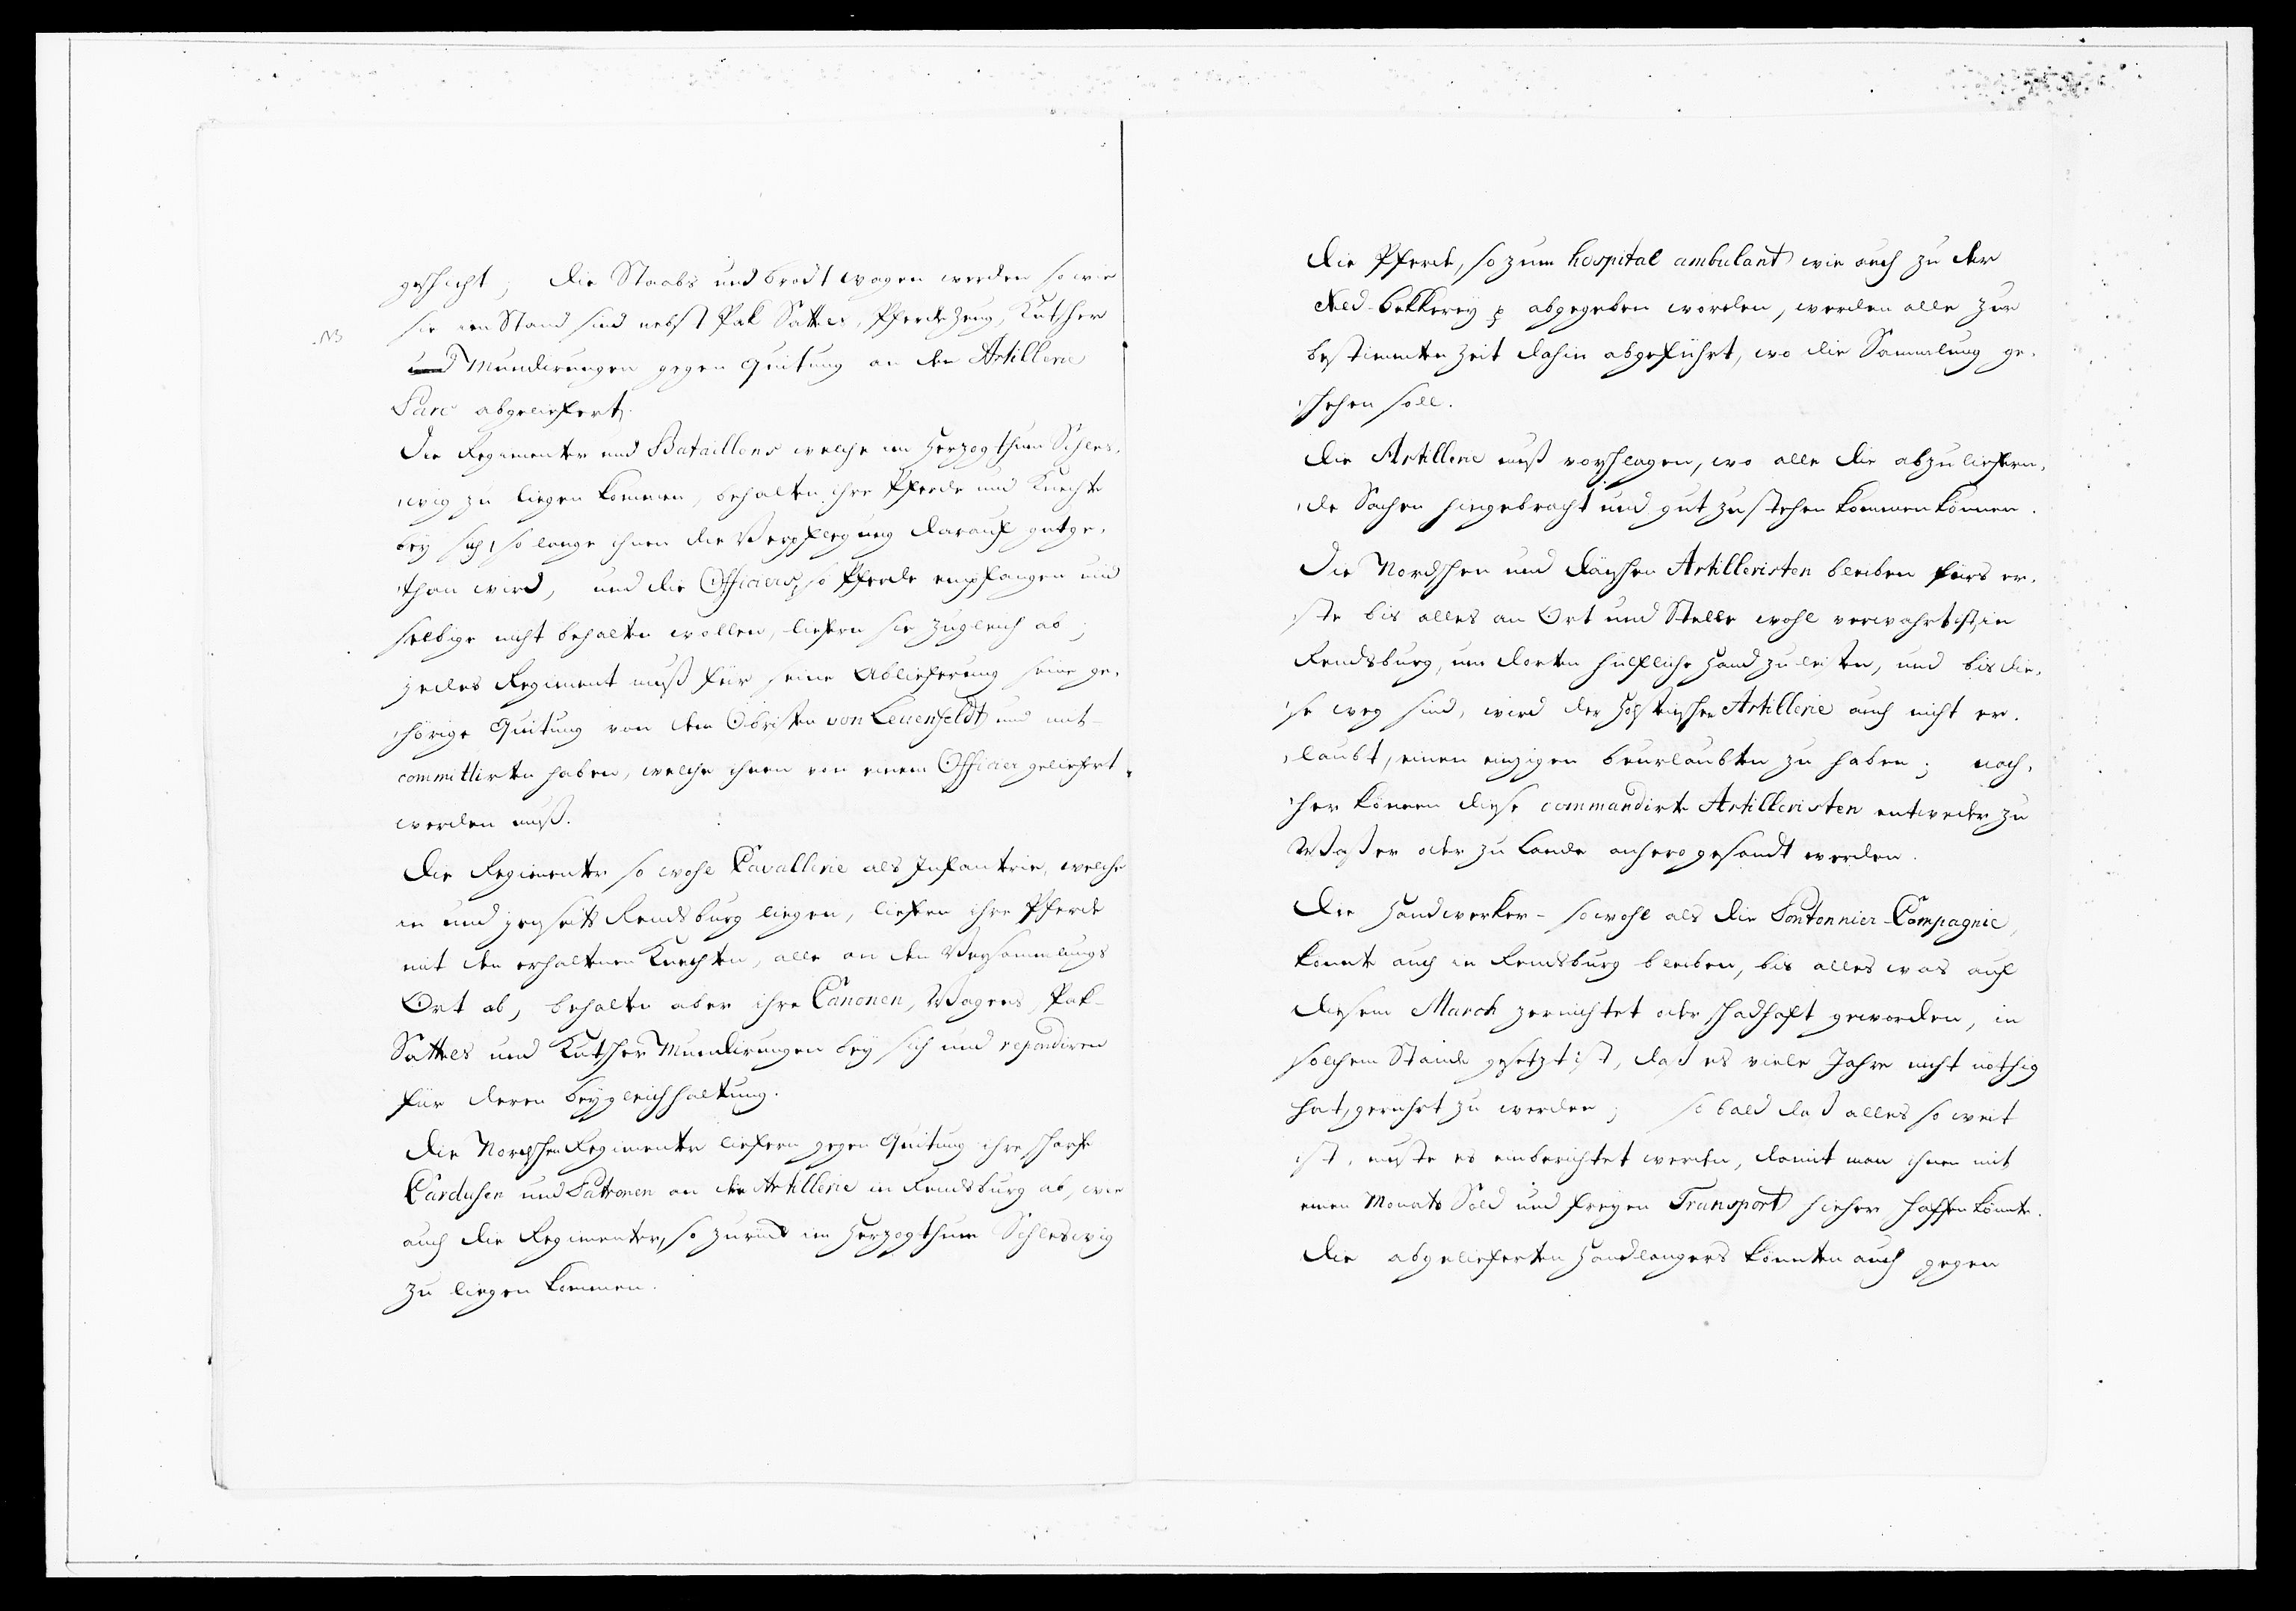 geschicht; die Staabs und brodt wagen werden so wie
NB
sie im Stand sind nebst Pak Sattels, Pferde Zeug, Kutscher
und Mundirungen gegen Quitung an den Artillerie
Parc abgeliefert.
Die Regimenter und Bataillons welche im Herzogthum Schles-
wig zu liegen kommen, behalten ihre Pferde und Knechte
bey sich, so lange ihnen die Verpflegung darauf gutge-
than wird, und die Officiers, so Pferde empfangen und
selbige nicht behalten wollen, liefern sie zugleich ab;
jedes Regiment muß für seine Ablieferung seine ge-
hörige Quitung von dem Obristen von Leuenfeldt und mit-
committirten haben, welche ihnen von einem Officier geliefert
werden muß.
Die Regimenter so wohl Cavallerie als Infanterie, welche
in und jenseits Rendsburg liegen, liefern ihre Pferde
mit den erhaltenen Knechten, alle an den Versammlungs
Ort ab, behalten aber ihre Canonen, Wagens, Pak-
Sattels und Kutscher Mundirungen bey sich und repondiren
für deren beygleichhaltung.
Die Nordschen Regimenter liefern gegen Quitung ihre scharfe
Cardusen und Patronen an die Artillerie in Rendsburg ab, wie
auch die Regimenter, so zurück im Herzogthum Schleswig
zu liegen kommen.
Die Pferde, so zum hospital ambulant wie auch zu der
Feld-bekkerey p abgegeben worden, werden alle zur
bestimmten Zeit dahin abgeführt, wo die Sammlung ge-
schehen soll.
Die Artillerie muß vorschlagen, wo alle die abzuliefern-
de Sachen hingebracht und gut zu stehen kommen können.
Die Nordschen und dänschen Artilleristen bleiben fürs er-
ste bis alles an Ort und Stelle wohl verwahrt ist, in
Rendsburg, um dorten hülfliche Hand zu leisten, und bis die-
se weg sind, wird der Holsteinschen Artillerie auch nicht er-
laubt, einen einzigen beurlaubten zu haben; nach-
her können diese commandirte Artilleristen entweder zu
Waßer oder zu Lande anhero gesandt werden.
Die Handwerker- sowohl als die Pontonnier-Compagnie,
könnte auch in Rendsburg bleiben, bis alles was auf
diesem March zernichtet oder schadhaft geworden, in
solchem Stande gesetzt ist, daß es viele Jahre nicht nöthig
hat, gerührt zu werden; so bald daß alles so weit
ist, müste es einberichtet werden, damit man ihnen mit
einen Monats Sold und freyen Transport hieher schaffen könnte.
Die abgelieferten Handlangers könnten auch gegen